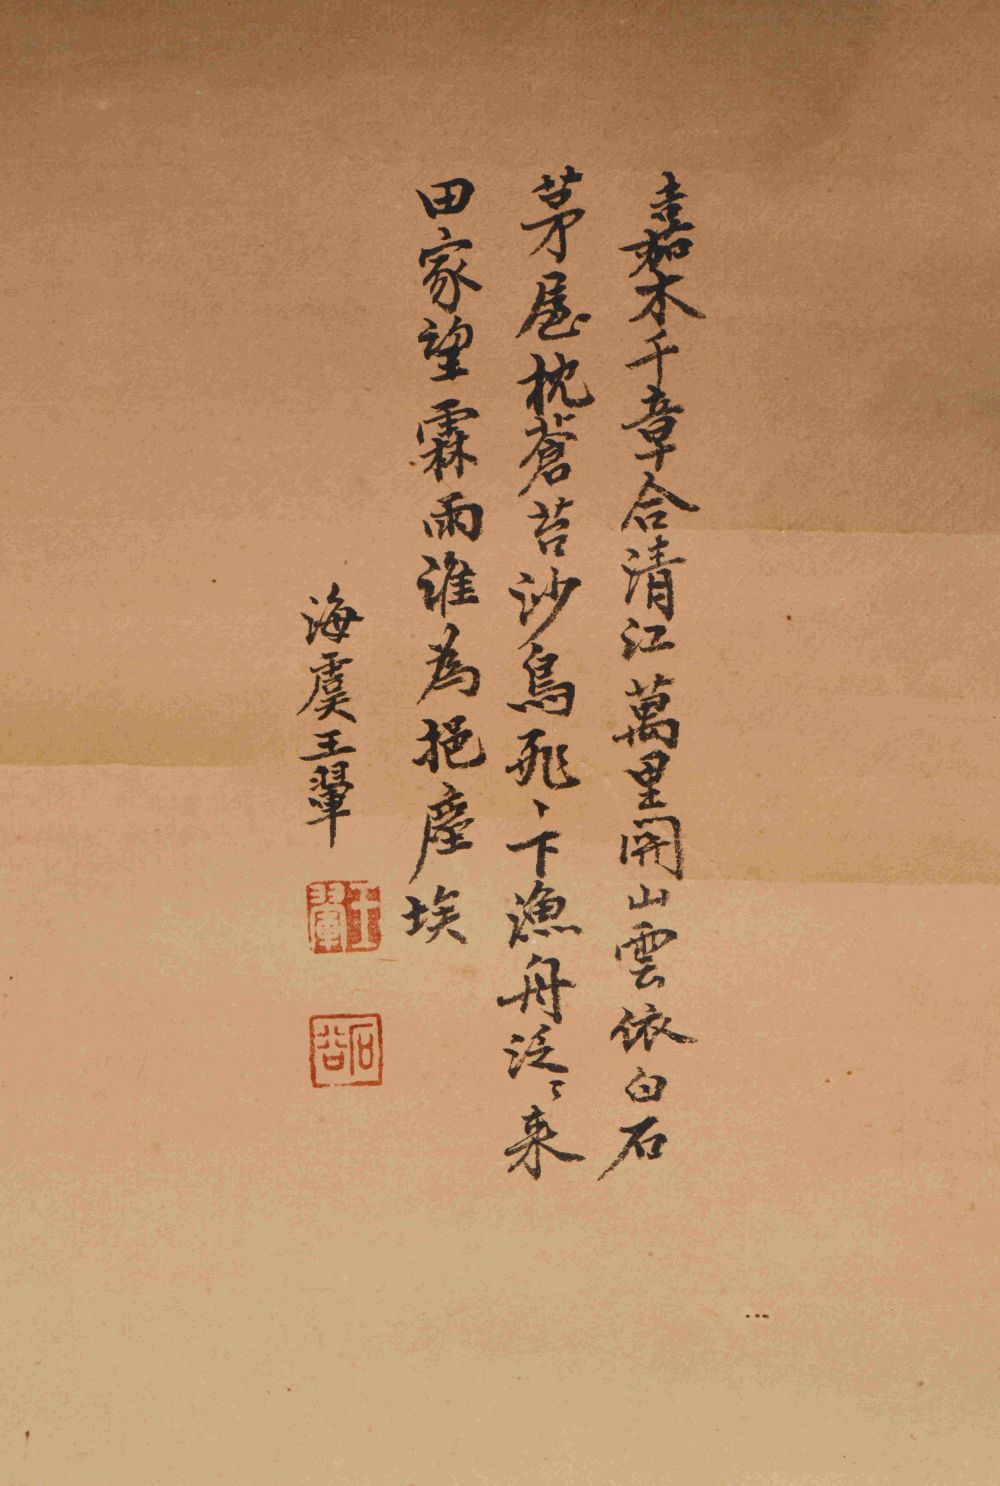 嘉木千章合清江萬里開山雲依白石
茅屋枕蒼苔沙鳥飛〻下漁舟泛〻來
田家望霖雨誰為挹塵埃
海虞王翬
王翬
石谷